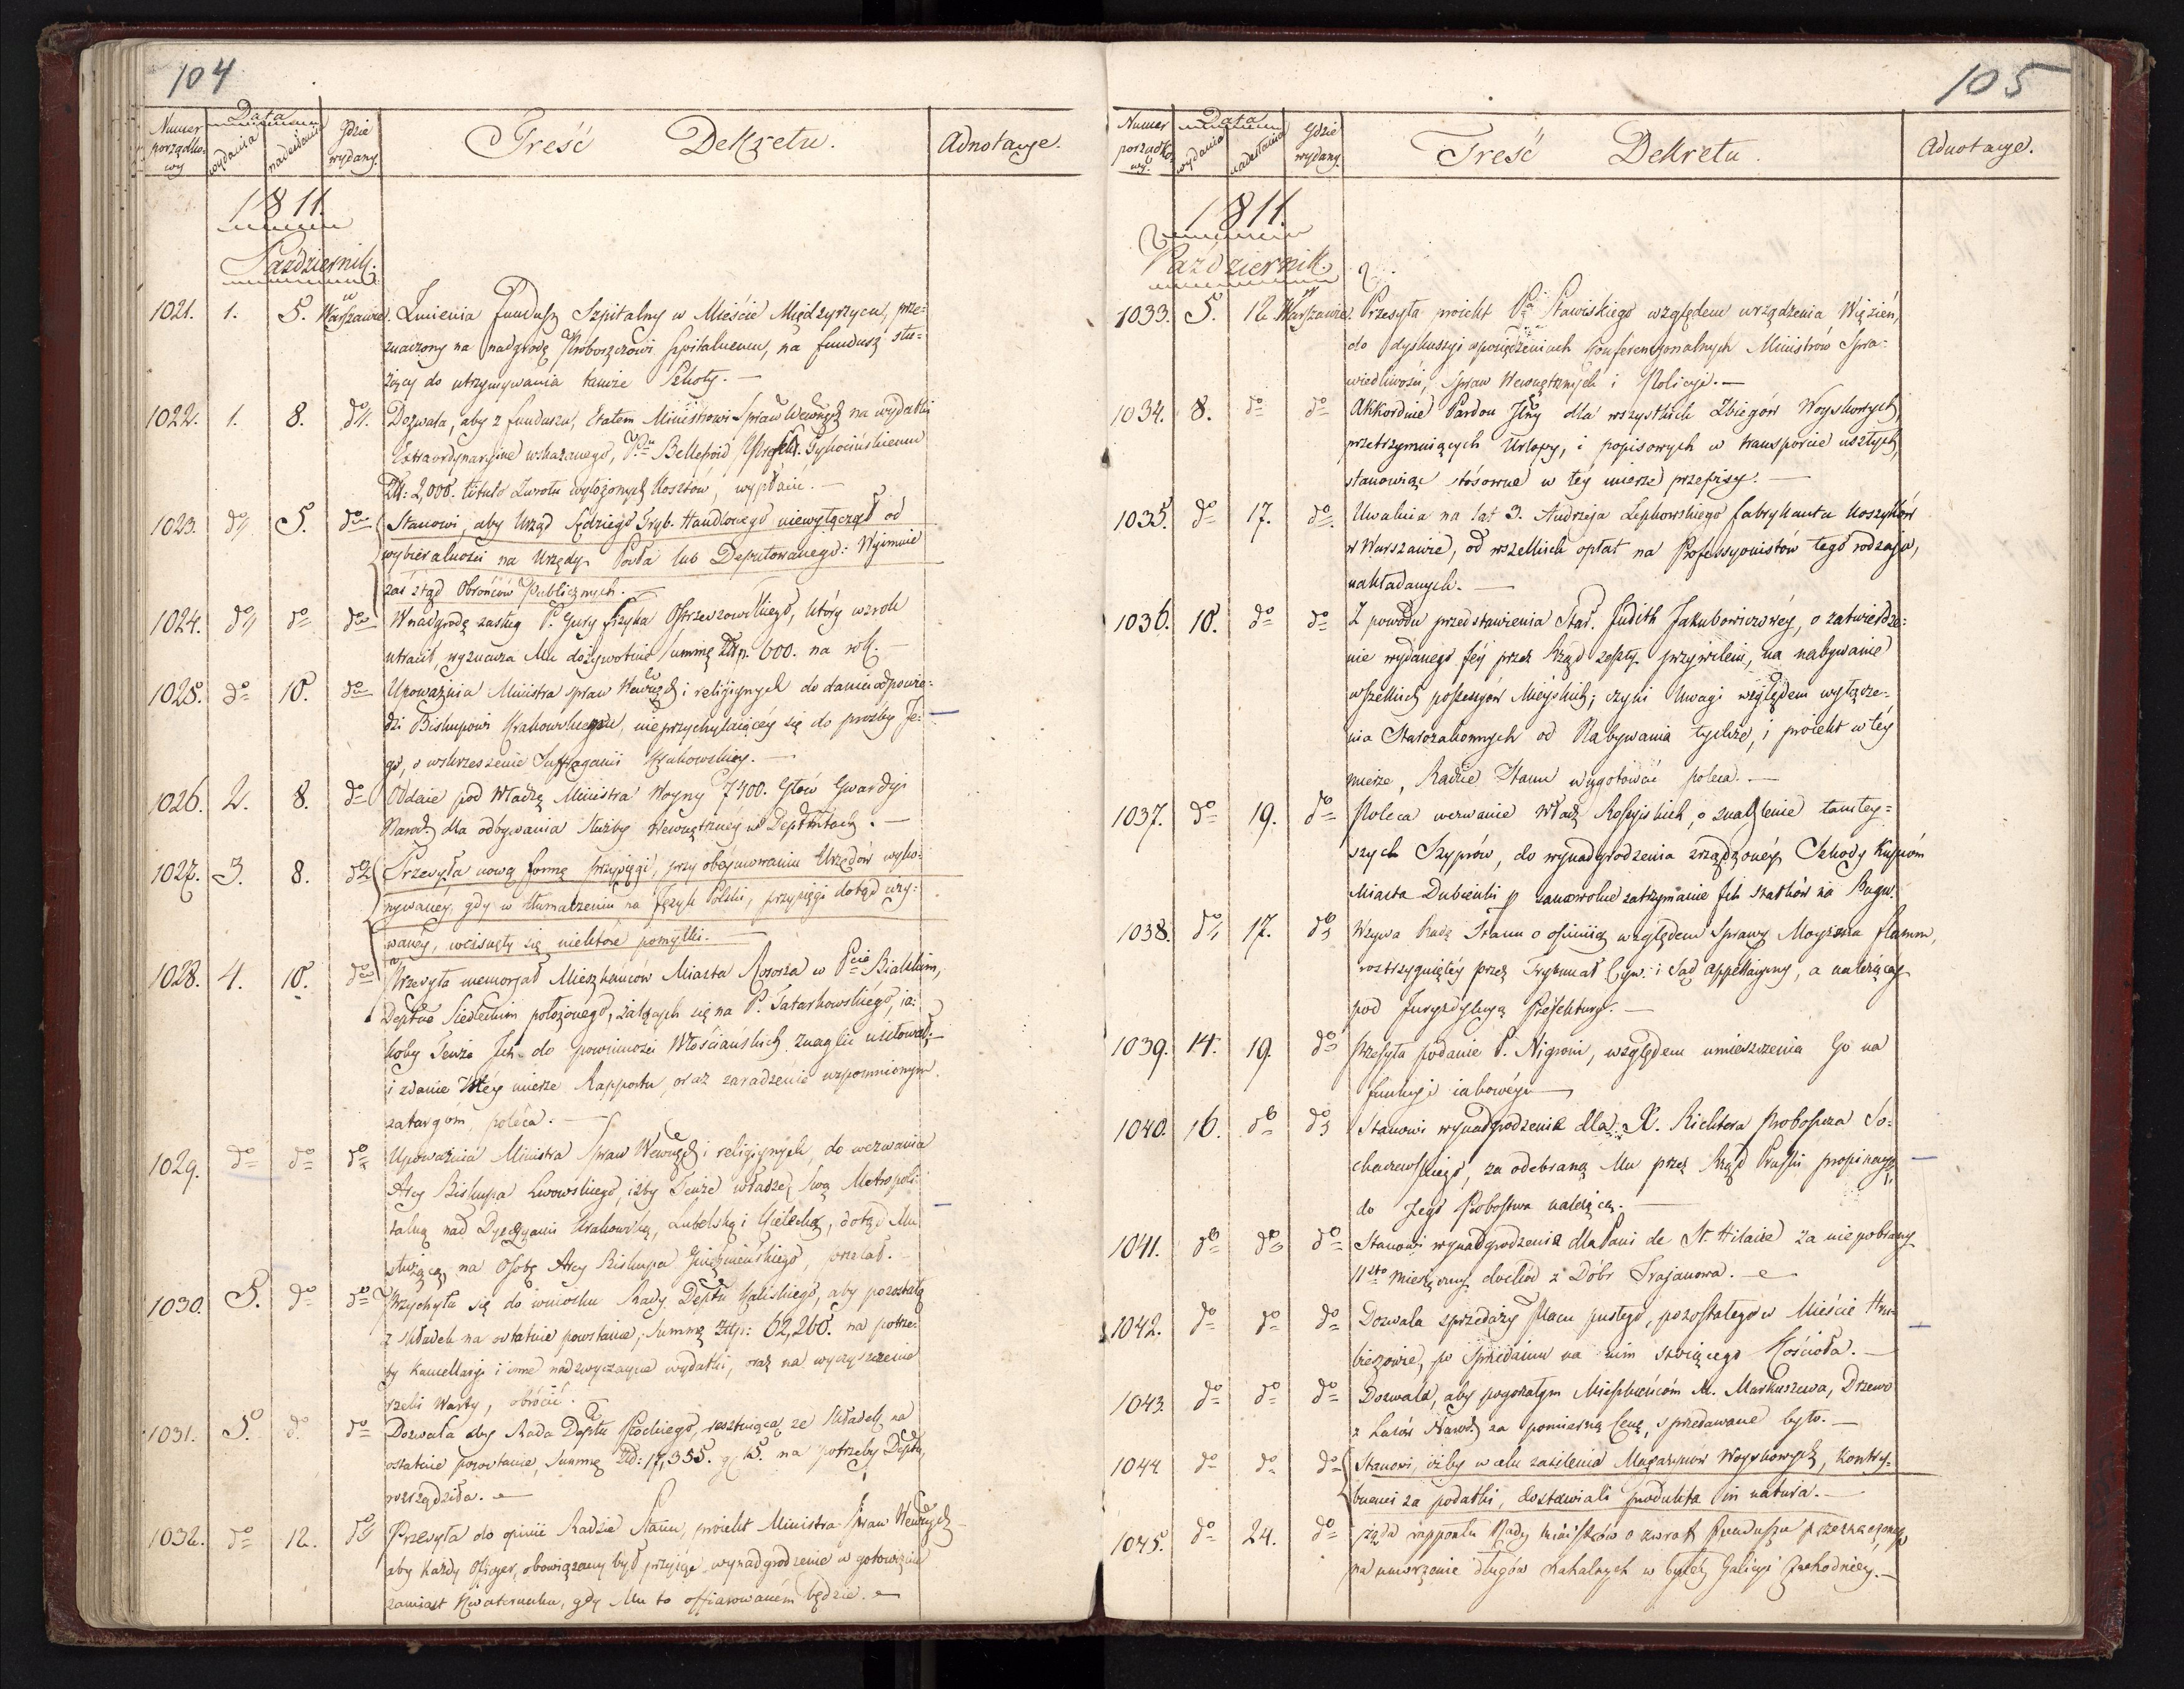 104
Numer porządkowy
Data
wydania
nadesłania
Gdzie wydany.
Treść Dekretu.
Adnotacye.
1811.
Październik.
1021. 1. 5. w Warszawie. Zmienia fundusz Szpitalny w Mieście Międzyrzycu, prze-
znaczony na nadgrodę Proboszczowi Szpitalnemu, na fundusz słu-
żący do utrzymywania tamże Szkoły.—
1022. 1. 8. do Dozwala, aby z funduszu, Etatem Ministrowi Spraw Wewnęch na wydatki
Extraordynaryine wskazanego, Pnu Bellefroid Tykocińskiemu
Zł: 2,000. tytuło Zwrotu wyłożonych Kosztów, wypłacić.—
1023. do 5. do Stanowi, aby Urząd Sędziego Tryb. Handlowego niewyłączał od
wybieralności na Urzędy Posła lub Deputowanego: Wyimuie
zaś ztąd Obrońców Publicznych.—
1024. do do do W nadgrodę zasług P. Gury fizyka Ostrzeszowskiego, który wzrok
utracił, wyznacza Mu dożywotnio Summę Złp. 600. na rok.—
1025. do 10. do Upoważnia Ministra Spraw Wewnęch i religiynych do dania odpowie-
dzi Biskupowi Krakowskiemu, nieprzychylaiącéy się do prozby Je-
go, o wskrzeszenie Suffraganii Krakowskiey.—
1026. 2. 8. do Oddaie pod Władzę Ministra Woyny 7400. Głów Gwardyi
Narod. dla odbywania służby Wewnętrzney w Deptmtach.—
1027. 3. 8. do Przesyła nową formę przysięgi, przy obeymowaniu Urzędów wyko-
nywanéy, gdy w tłumaczeniu na Język Polski, przysięgi dotąd uży-
wanéy, wcisnęły się niektóre pomyłki.—
1028. 4. 10. do Przesyła memoryał Mieszkańców Miasta Rososza w Pcie Bialskim,
Deptcie Siedleckim położonego, żalących się na P. Tatarkowskiégo, ia-
koby Tenże Ich do powinności Włościańskich znaglić usiłował;—
i zdanie w téy mierze Rapportu, oraz zaradzenie wzpomnionym
zatargóm, poléca.—
1029. do do do Upoważnia Ministra Spraw Wewnęch i religiynych, do wezwania
Arcy Biskupa Lwowskiego, iżby Tenże władzę swą Metropoli-
talną nad Dyecezyami Krakowską, Lubelską i Kielecką, dotąd Mu
służącą, na Osobę Arcy Biskupa Gnieźnieńskiego, przelał.—
1030. 5. do do Przychyla się do wniosku Rady Deptu Kaliskiego, aby pozostałą
z składek na ostatnie powstanie, Summę Złp: 62,260. na potrze-
by Kancellaryi i inne nadzwyczayne wydatki, oraz na wyczyszczenie
rzeki Warty, obrócić.
1031. 5. do do Dozwala aby Rada Deptu Płockiego, resztuiącą ze składek na
ostatnie powstanie, Summę Złd: 17,355. gr. 15. na potrzeby Deptu,
rozrządziła.
1032. do 12. do Przesyła do opinii Radzie Stanu, proiekt Ministra Spraw Wewnęch
aby Każdy Oficyer, obowiązany był przyiąć wynadgrodzenie w gotowiznie
zamiast Kwaterunku, gdy Mu to offiarowaném będzie.
105
Numer porządkowy.
Data
wydania
nadesłania
Gdzie wydany.
Treść Dekretu.
Adnotacye.
1811.
Październik.
1033. 5. 12. w Warszawie. Przesyła proiekt Pa Stawiskiego względem urządzenia Więzień,
do dyskussyi w posiedzeniach konferencyonalnych Ministrów Spra-
wiedliwości, Spraw Wewnętrznych i Policyi.—
1034. 8. do do Akkorduie Pardon Jlny dla wszystkich Zbiegów Woyskowych,
przetrzymuiących Urlopy, i popisowych w transporcie uszłych,
stanowiąc stósowne w téy mierze przepisy.—
1035. do 17. do Uwalnia na lat 3. Andrzeja Lepkowskiego fabrykanta Koszyków
w Warszawie, od wszelkich opłat na Professyonistów tego rodzaju,
nakładanych.—
1036. 10. do do Z powodu przedstawienia Star. Judith Jakubowiczowéy, o zatwierdze-
nie wydanego Jéy przez Rząd zeszły przywileiu, na nabywanie
wszelkich possessyów Mieyskich; czyni Uwagi względem wyłącze-
nia Starozakonnych od Nabywania tychże, i proiekt w téy
mierze, Radzie Stanu wygotować poleca.—
1037. do 19. do Poleca wezwanie Władz Rossyiskich, o znaglenie tamtey-
szych Szyprów, do wynadgrodzenia zrządzonéy Szkody Kupcóm
Miasta Dubienki p samowolne zatrzymanie Ich statków na Bugu.
1038. do 17. do Wzywa Radę Stanu o opinią względem Sprawy Moyżesza Flamm,
roztrzygniętéy przez Trybunał Cyw. i Sąd Appellacyiny, a należącéy
pod Juryzdykcyą Prefektury.—
1039. 14. 19. do Przesyła podanie P. Nigroni, względem umieszczenia Go na
funkcyi iakowéy.—
1040. 16. do do Stanowi wynadgrodzenie dla X. Richtera Proboszcza So-
chaczewskiego, za odebraną Mu przez Rząd Pruski propinacyę,
do Jego Probostwa należącą.—
1041. do do do Stanowi wynadgrodzenie dla Pani de St. Hilaire za niepobrany
11sto miesięczny dochód z Dóbr Trajanowa.—
1042. do do do Dozwala sprzedaży placu pustego, pozostałego w Mieście Hru-
bieszowie, po spaleniu na nim stoiącego Kościoła.—
1043. do do do Dozwala, aby pogorzałym Mieszkańcóm M. Markuszewa, Drzewo
z Lasów Narod. za pomierną Cenę, sprzedawane było.—
1044. do do do Stanowi, iżby w celu zasilenia Magazynów Woyskowych, kontry-
buenci za podatki, dostawiali produkta in natura.—
1045. do 24. do żąda rapportu Rady Ministrów o zwrot funduszu przeznaczonego
na umorzenie długów kahalnych w byłéy Galicyi Zachodniey.—